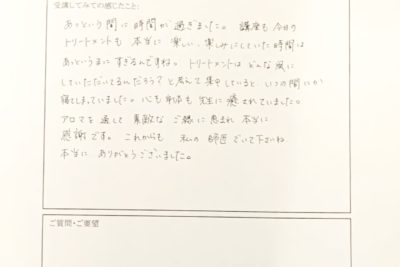 受講してみての感じたこと:
あっという間に時間が過ぎました。講座も今日の
トリートメントも 本当に 楽しい、楽しみにしていた時間は
あっというまに すぎるんですね。トリートメントは どんな風に
していただいてるんだろう?と思って集中していると、いつの間にか
寝てしまっていました。心も身体も 先生に 癒されていました。
アロマを通して 素敵な ご縁に恵まれ 本当に
感謝です。これからも 私の 師匠でいて下さいね
本当に ありがとうございました。
ご質問・ご要望